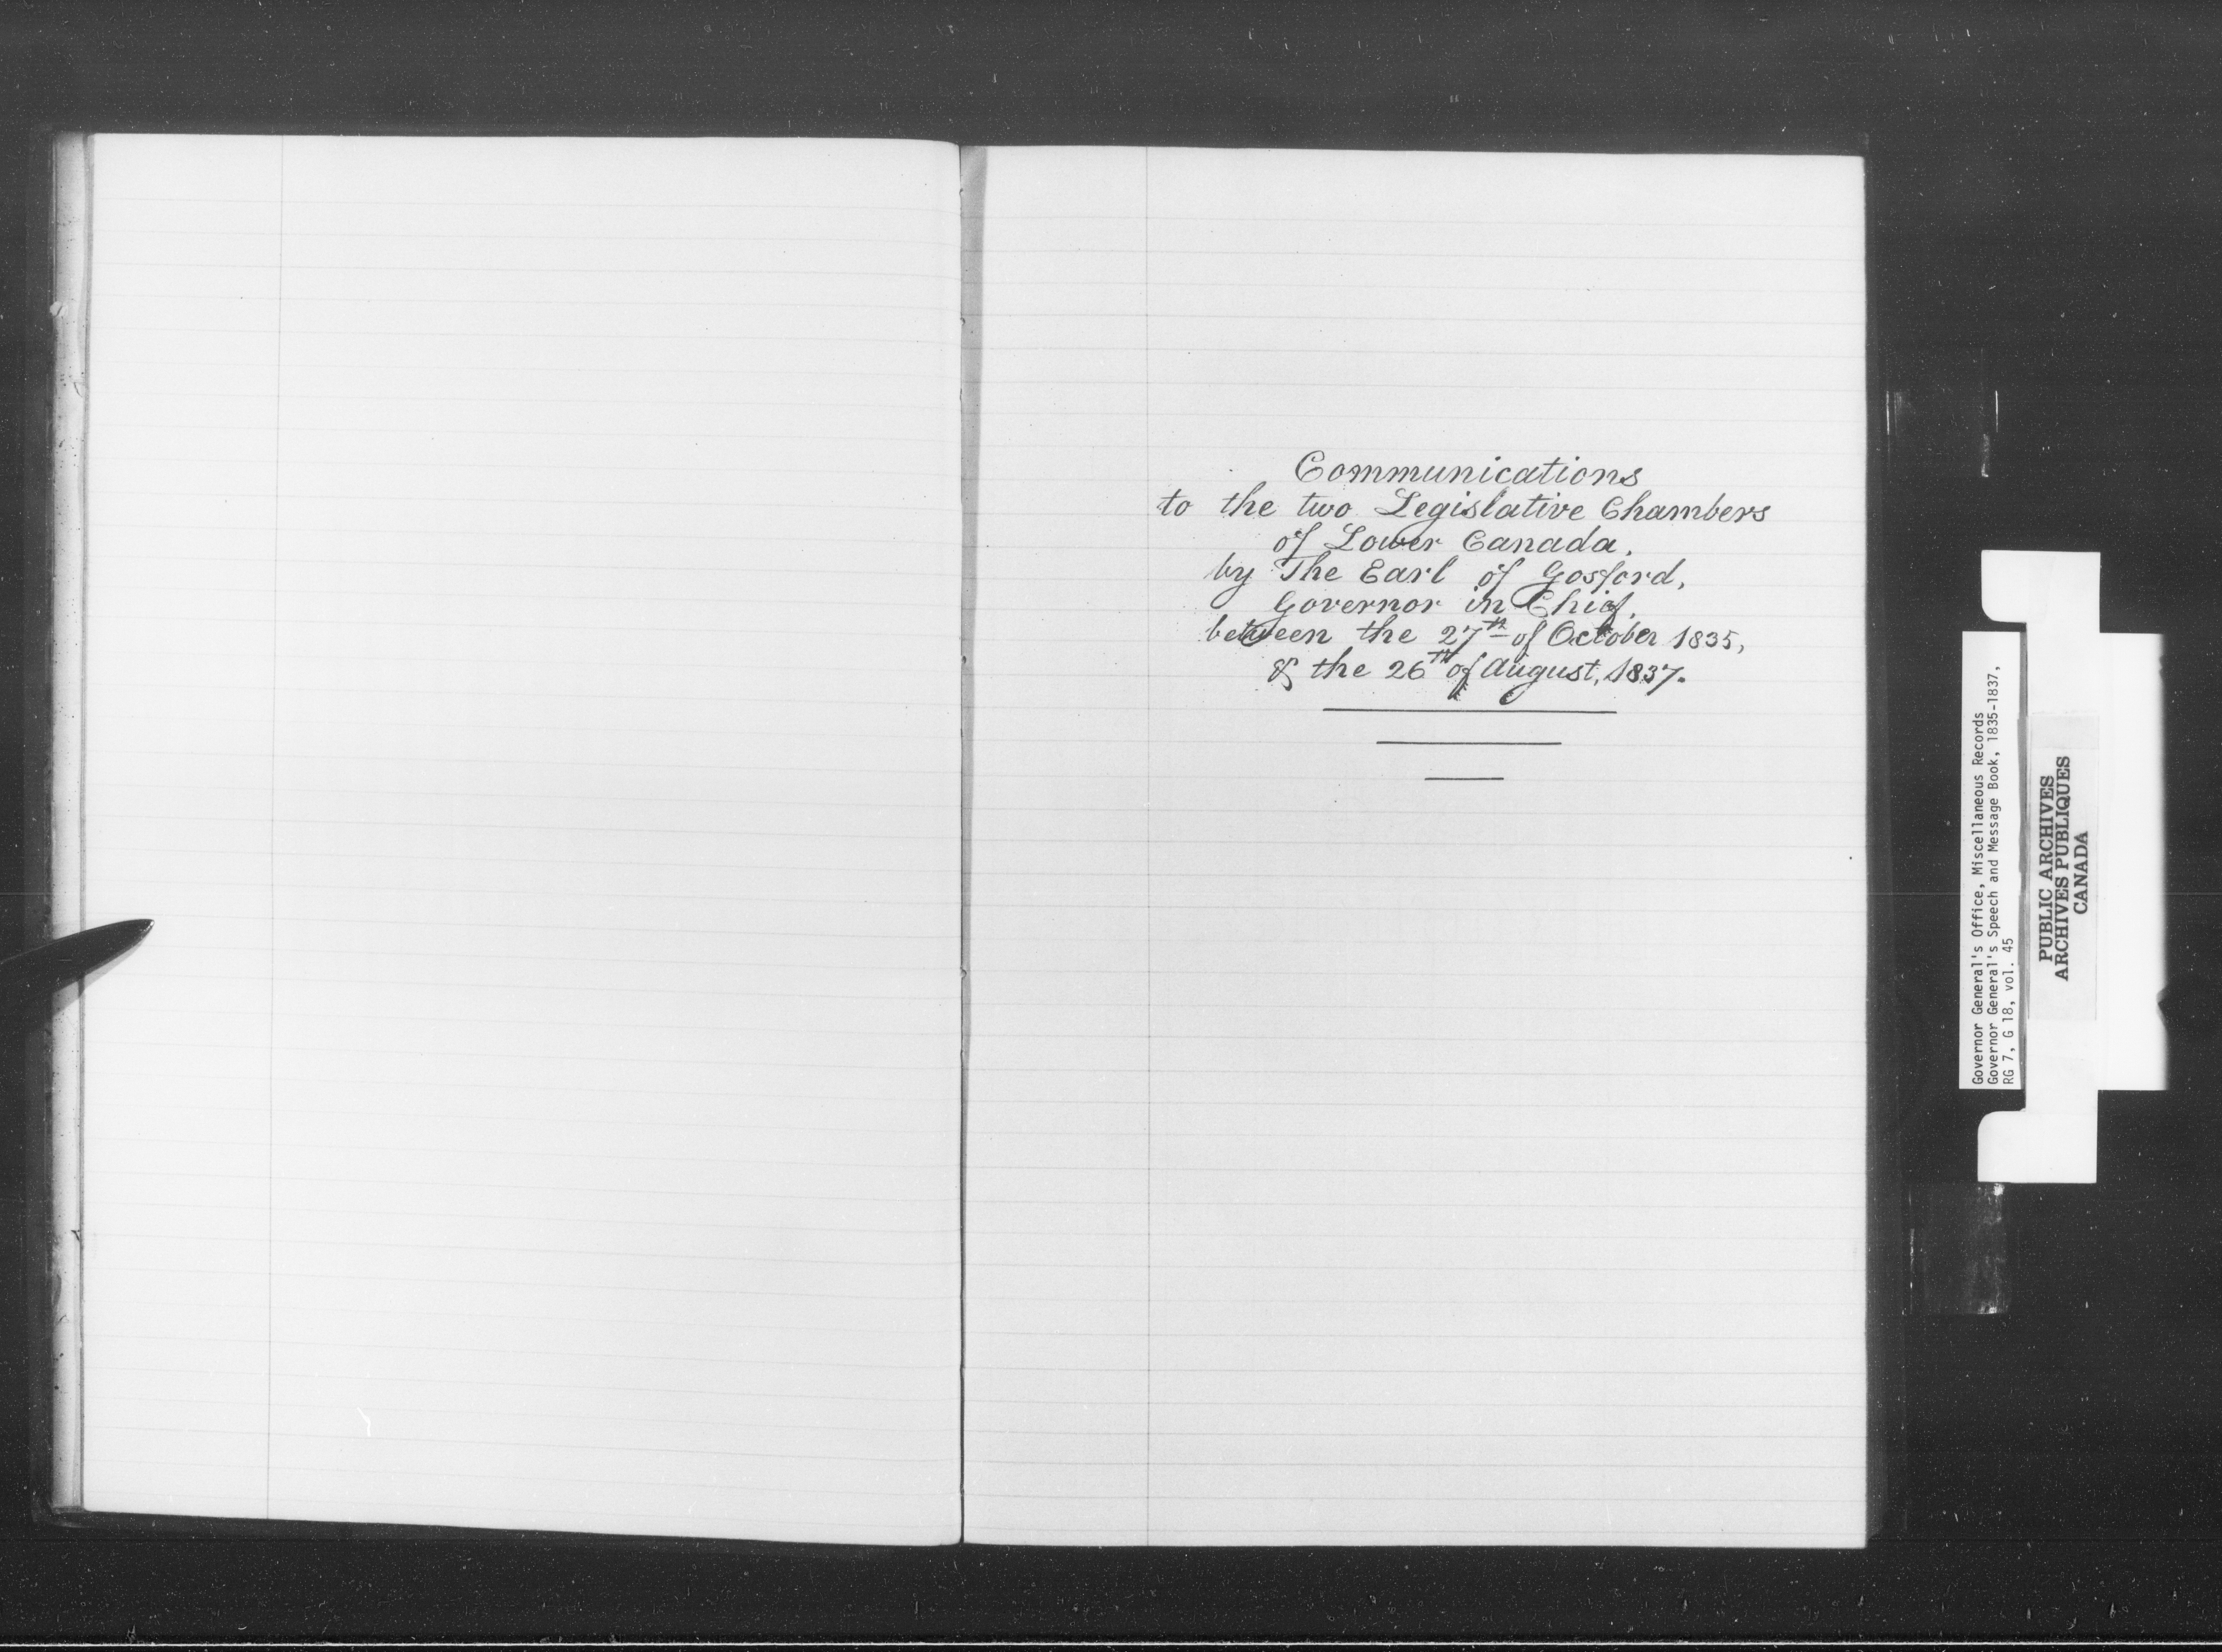 Communications
to the two Legislative Chambers
of Lower Canada.
by The Earl of Gosford,
Governor in Chief.
between the 27th of October 1835,
& the 26th of August, 1837.
Governor General's Office, Miscellaneous Records
Governor General's Speech and Message Book, 1835-1837,
RG 7, G 18, vol. 45
PUBLIC ARCHIVES
ARCHIVES PUBLIQUES
CANADA